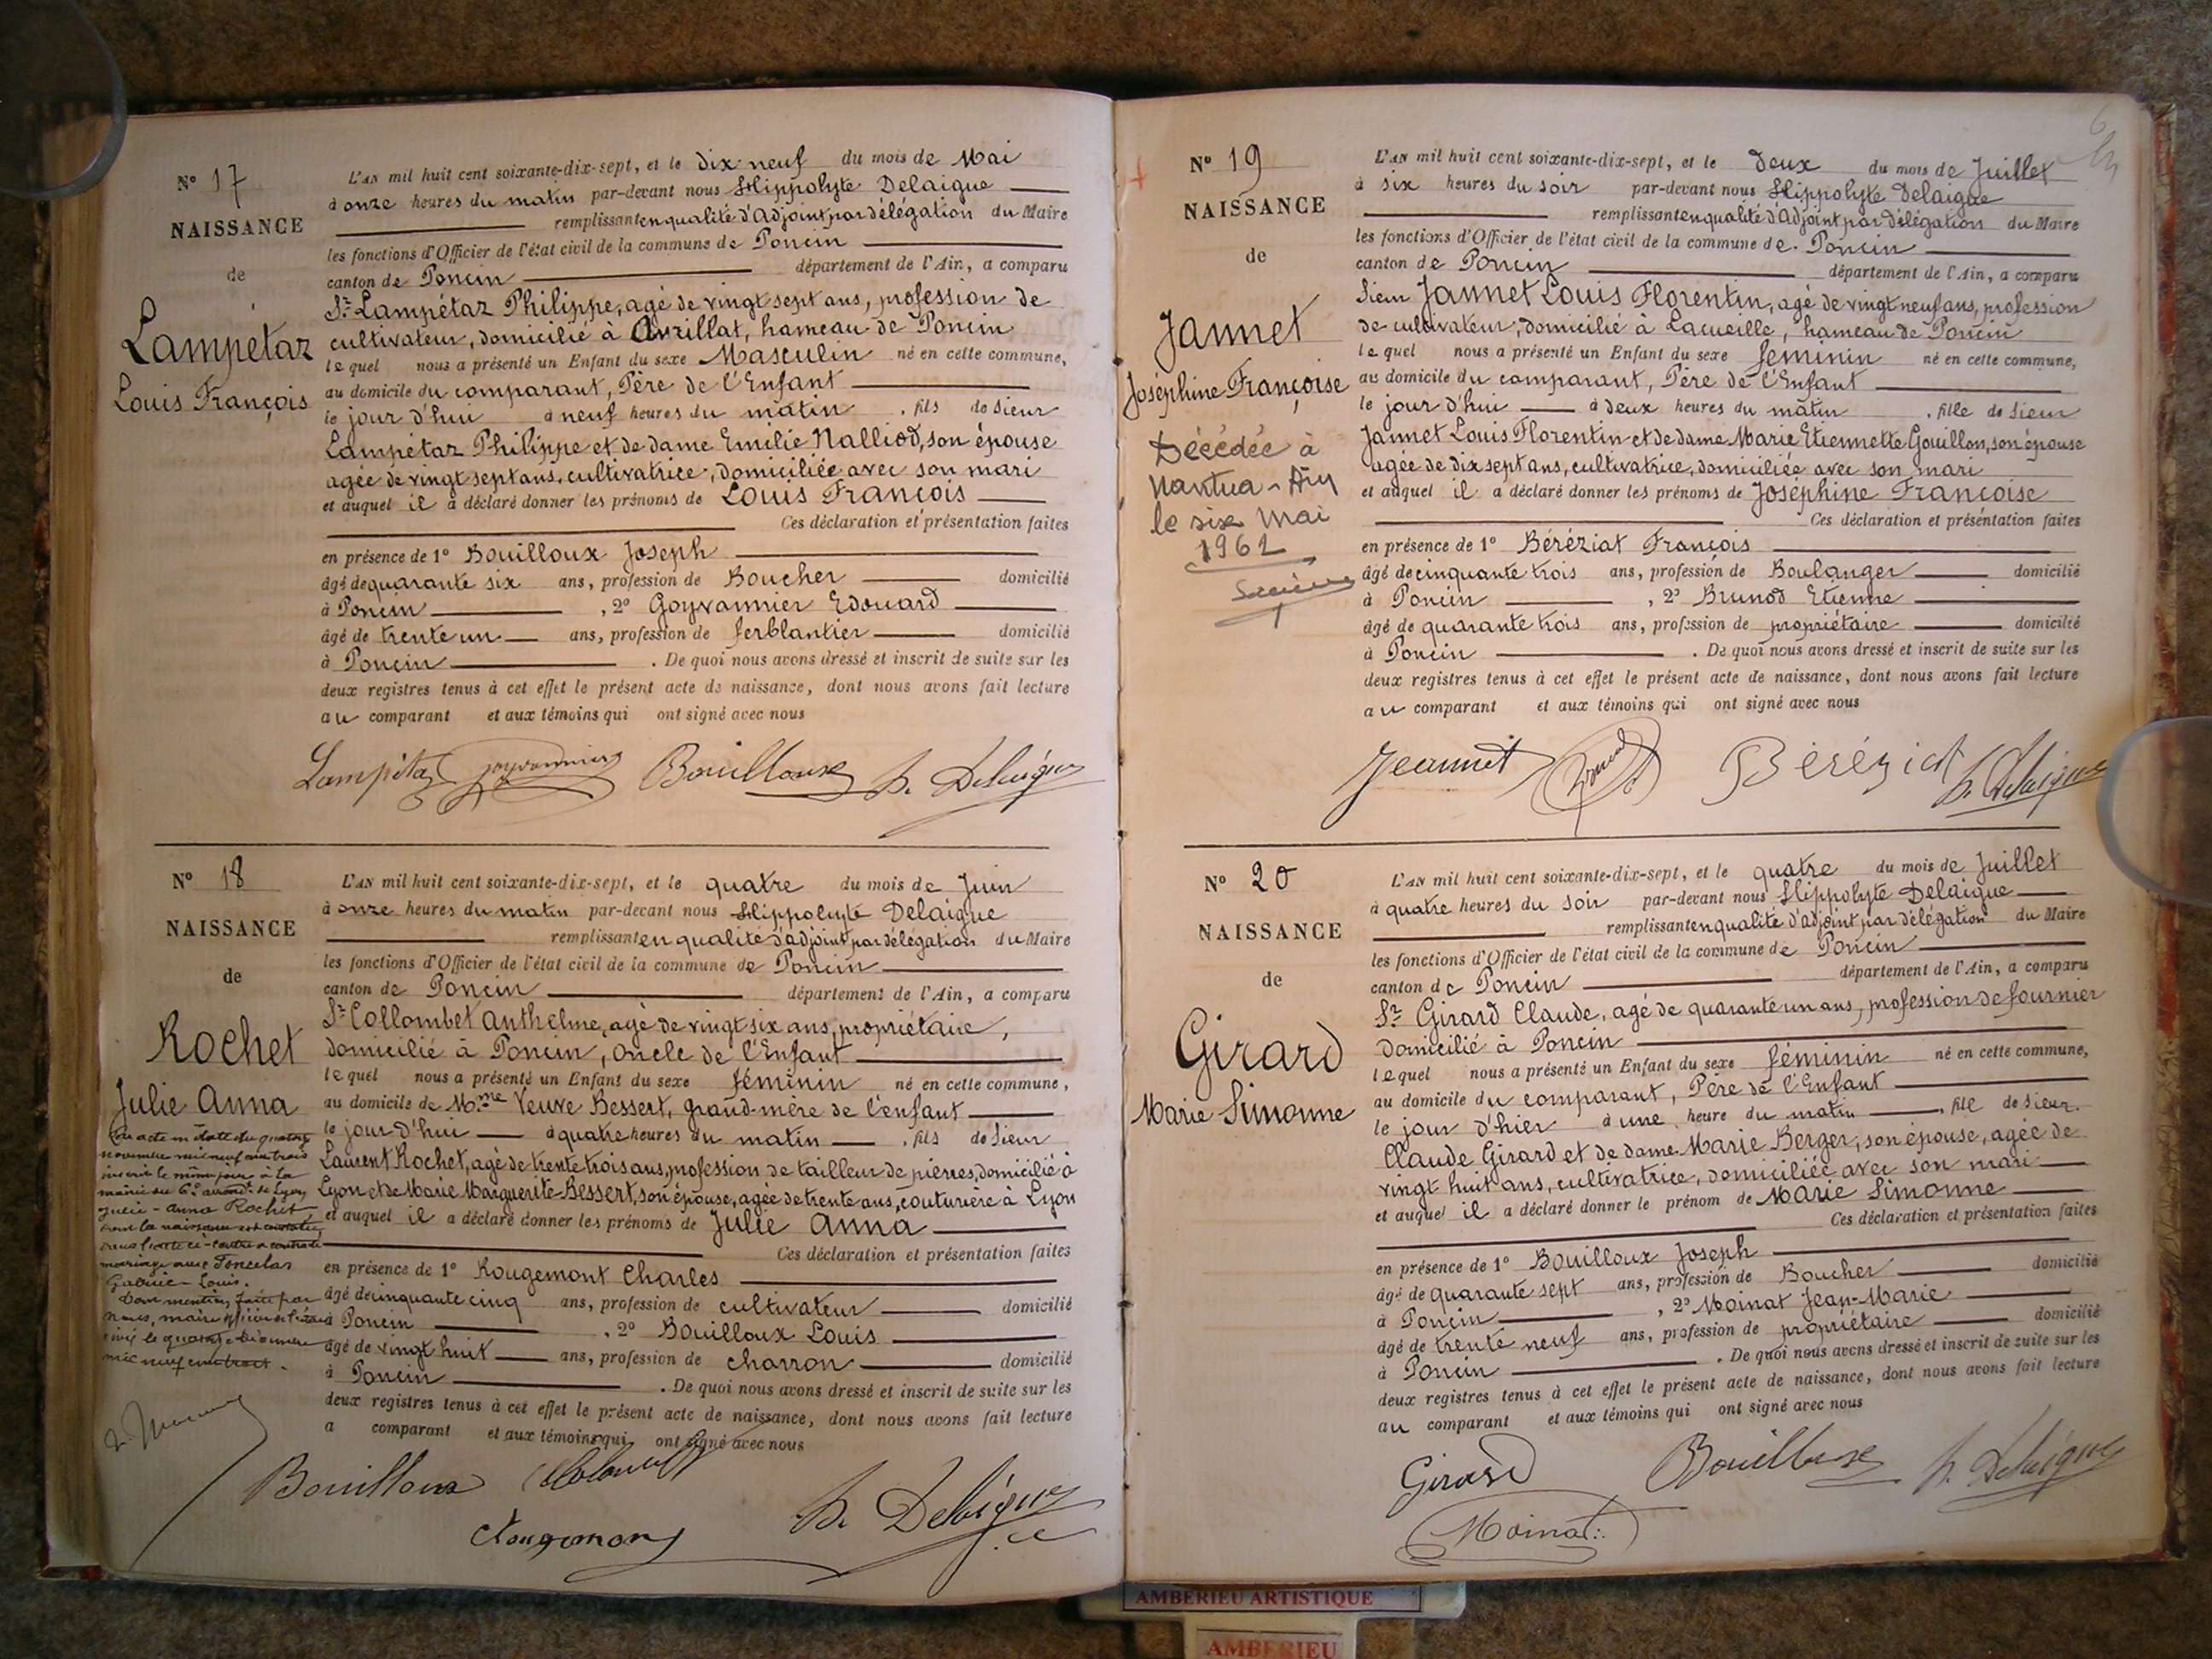 N° 17
NAISSANCE
de
Lampétaz
Louis François
L'AN mil huit cent soixante-dix-sept, et le dix neuf du mois de Mai
à onze heures du matin par-devant nous Hippolyte Delaigue
remplissant en qualité d'Adjoint par délégation du Maire
les fonctions d'Officier de l'état civil de la commune de Poncin
canton de Poncin département de l'Ain, a comparu
Sr. Lampétaz Philippe, agé de vingt sept ans, profession de
cultivateur, domicilié à Avrillat, hameau de Poncin
lequel nous a présenté un Enfant du sexe Masculin né en cette commune,
au domicile du comparant, Père de l'Enfant
le jour d'hui à neuf heures du matin , fils de Sieur
Lampétaz Philippe et de dame Emilie Nalliod, son épouse
agée de vingt sept ans, cultivatrice, domiciliée avec son mari
et auquel il a déclaré donner les prénoms de Louis François
Ces déclaration et présentation faites
en présence de 1° Bouilloux Joseph
âgé de quarante six ans, profession de Boucher domicilié
à Poncin , 2° Goyvannier Edouard
âgé de trente un ans, profession de ferblantier domicilié
à Poncin . De quoi nous avons dressé et inscrit de suite sur les
deux registres tenus à cet effet le présent acte de naissance, dont nous avons fait lecture
au comparant et aux témoins qui ont signé avec nous
Lampétaz Goyvannier Bouilloux h. Delaigue
N° 18
NAISSANCE
de
Rochet
Julie Anna
Par acte en date du quatre
novembre mil neuf cent trois
inscrit le même jour à la
mairie du 6e arrond. de Lyon
Julie-Anna Rochet
dont la naissance est constatée
dans l'acte ci-contre a contracté
mariage avec
Gabriel-Louis.
Dont mention faite par
nous, maire officier de l'état
civil le quatorze Décembre
mil neuf cent trois.
L'AN mil huit cent soixante-dix-sept, et le quatre du mois de Juin
à onze heures du matin par-devant nous Hippolyte Delaigue
remplissant en qualité d'adjoint par délégation du Maire
les fonctions d'Officier de l'état civil de la commune de Poncin
canton de Poncin département de l'Ain, a comparu
Sr. Collombet Anthelme, agé de vingt six ans, propriétaire,
domicilié à Poncin, oncle de l'Enfant
lequel nous a présenté un Enfant du sexe féminin né en cette commune,
au domicile de Mme Veuve Bessert, grand-mère de l'enfant
le jour d'hui à quatre heures du matin , fils de Sieur
Laurent Rochet, agé de trente trois ans, profession de tailleur de pierres, domicilié à
Lyon et de Marie Marguerite Bessert, son épouse, agée de trente ans, couturière à Lyon
et auquel il a déclaré donner les prénoms de Julie Anna
Ces déclaration et présentation faites
en présence de 1° Rougemont Charles
âgé de cinquante cinq ans, profession de cultivateur domicilié
à Poncin , 2° Bouilloux Louis
âgé de vingt huit ans, profession de charron domicilié
à Poncin . De quoi nous avons dressé et inscrit de suite sur les
deux registres tenus à cet effet le présent acte de naissance, dont nous avons fait lecture
a comparant et aux témoins qui ont signé avec nous
Bouilloux
Rougemont h. Delaigue
N° 19
NAISSANCE
de
Jannet
Joséphine Françoise
Décédée à
Nantua - Ain
le six Mai
1961
L'AN mil huit cent soixante-dix-sept, et le deux du mois de Juillet
à six heures du soir par-devant nous Hippolyte Delaigue
remplissant en qualité d'Adjoint par délégation du Maire
les fonctions d'Officier de l'état civil de la commune de Poncin
canton de Poncin département de l'Ain, a comparu
Sieur Jannet Louis Florentin, agé de vingt neuf ans, profession
de cultivateur, domicilié à Lacueille, hameau de Poncin
lequel nous a présenté un Enfant du sexe féminin né en cette commune,
au domicile du comparant, Père de l'Enfant
le jour d'hui à deux heures du matin , fille de Sieur
Jannet Louis Florentin et de dame Marie Etiennette Gouillon, son épouse
agée de dix sept ans, cultivatrice, domiciliée avec son mari
et auquel il a déclaré donner les prénoms de Joséphine Françoise
Ces déclaration et présentation faites
en présence de 1° Béréziat François
âgé de cinquante trois ans, profession de Boulanger domicilié
à Poncin , 2° Brunod Etienne
âgé de quarante trois ans, profession de propriétaire domicilié
à Poncin . De quoi nous avons dressé et inscrit de suite sur les
deux registres tenus à cet effet le présent acte de naissance, dont nous avons fait lecture
au comparant et aux témoins qui ont signé avec nous
Jeannet Brunod Béréziat h. Delaigue
N° 20
NAISSANCE
de
Girard
Marie Simonne
L'AN mil huit cent soixante-dix-sept, et le quatre du mois de Juillet
à quatre heures du soir par-devant nous Hippolyte Delaigue
remplissant en qualité d'adjoint par délégation du Maire
les fonctions d'Officier de l'état civil de la commune de Poncin
canton de Poncin département de l'Ain, a comparu
Sr. Girard Claude, agé de quarante un ans, profession de fournier
domicilié à Poncin
lequel nous a présenté un Enfant du sexe féminin né en cette commune,
au domicile du comparant, Père de l'Enfant
le jour d'hier à une heure du matin , fille de Sieur
Claude Girard et de dame Marie Berger, son épouse, agée de
vingt huit ans, cultivatrice, domiciliée avec son mari
et auquel il a déclaré donner le prénom de Marie Simonne
Ces déclaration et présentation faites
en présence de 1° Bouilloux Joseph
âgé de quarante sept ans, profession de Boucher domicilié
à Poncin , 2° Moinat Jean-Marie
âgé de trente neuf ans, profession de propriétaire domicilié
à Poncin . De quoi nous avons dressé et inscrit de suite sur les
deux registres tenus à cet effet le présent acte de naissance, dont nous avons fait lecture
au comparant et aux témoins qui ont signé avec nous
Girard Bouilloux h. Delaigue
Moinat
AMBERIEU ARTISTIQUE
AMBERIEU